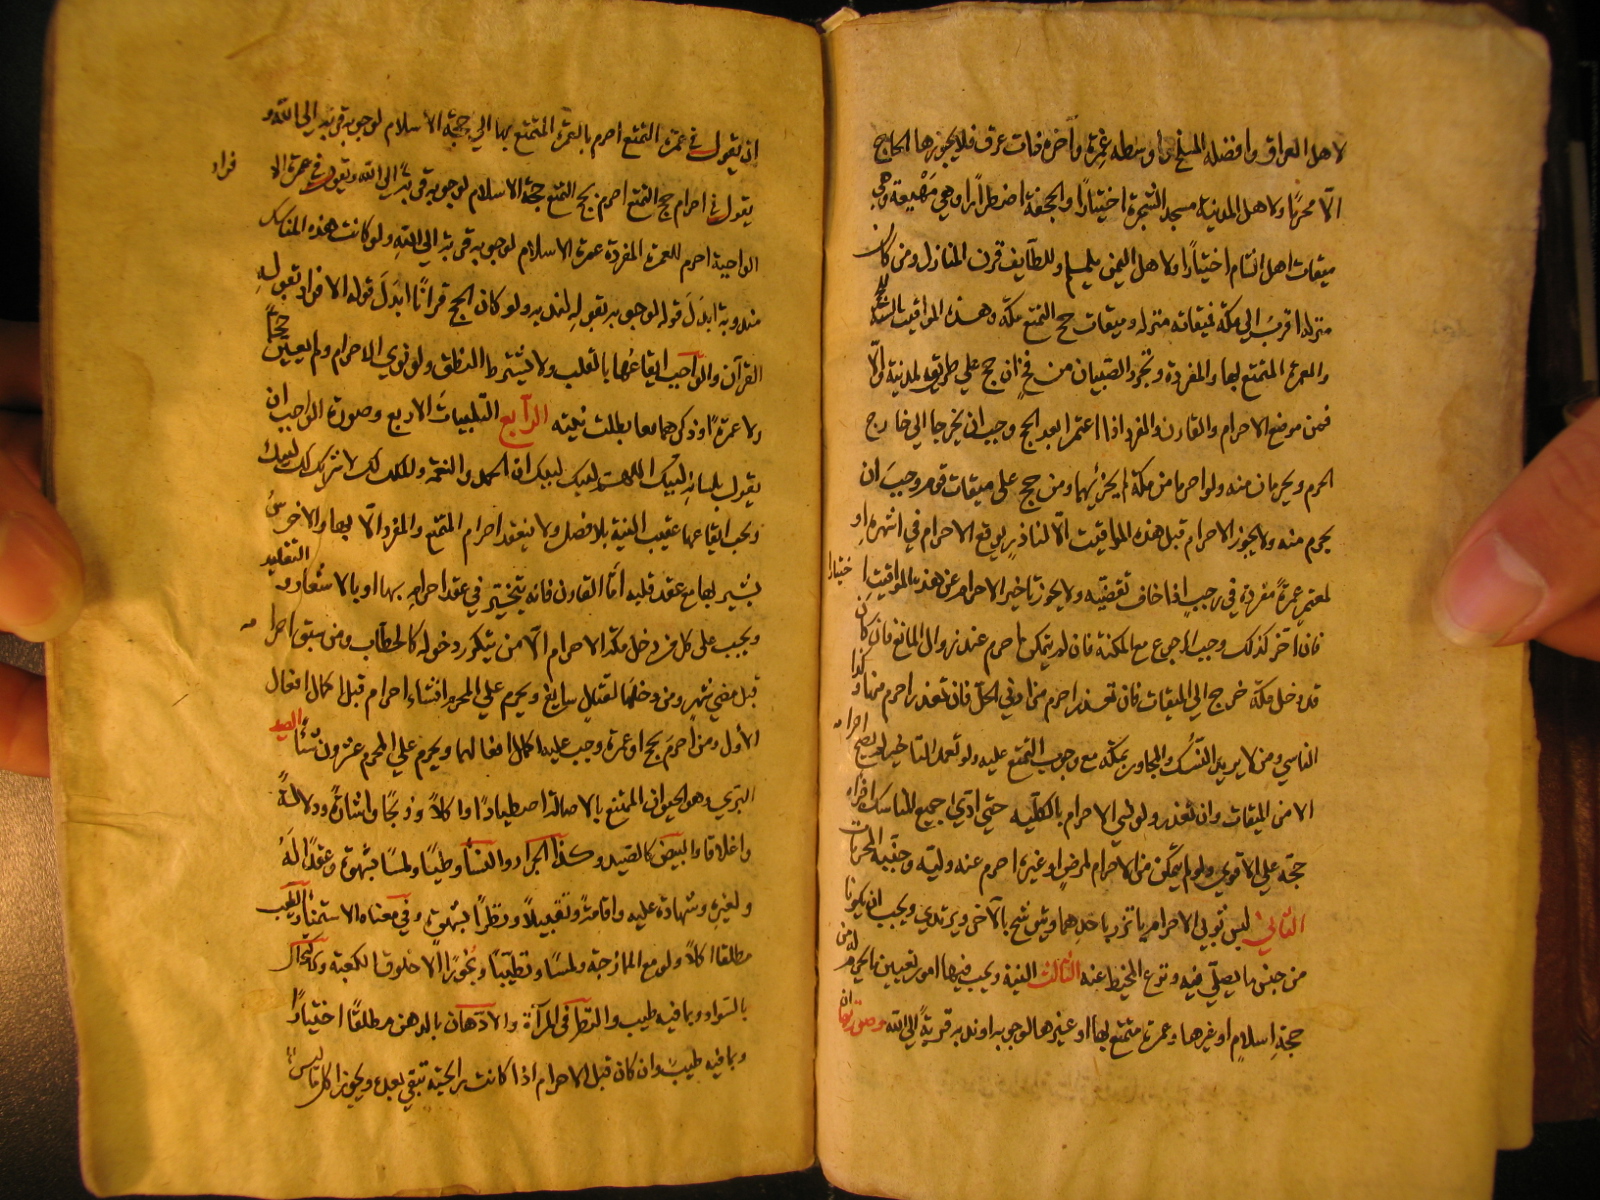 لاهل العراق وافضله المسلخ واوسطه غمرة وآخره ذات عرق فلا يجوزها الحاج
الّا محرمًا ولاهل المدينة مسجد الشجرة اختيارًا والجحفة اضطرارًا وهي مهيعة وهي
ميقات اهل الشام اختيارًا ولاهل اليمن يلملم وللطايف قرن المنازل ومن كان
منزله اقرب الي مكة فميقاته منزله وميقات حج التمتع مكة وهذه المواقيت للحج
والعمرة المتمتع بها والمفردة وتجرد الصبيان من فخ ان حج علي طريق المدينة والّا
فمن موضع الاحرام والقارن والمفرد اذا اعتمرا بعد الحج وجب ان يخرجا الي خارج
الحرم ويحرمان منه ولو احرما من مكة لم يجزيهما ومن حج علي ميقات قوم وجب ان
يحرم منه ولا يجوز الاحرام قبل هذه المواقيت الّا لناذر يوقع الاحرام في اشهره او
لمعتمر عمرة مفردة في رجب اذا خاف تقضّيه ولا يجوز تاخير الاحرام عن هذه المواقيت اختيارا
فان اخّر كذلك وجب الرجوع مع المكنة فان لم يتمكن احرم عند زوال المانع فان كان
قد دخل مكة خرج الي الميقات فان تعذر احرم من ادني الحلّ فان تعذر احرم منها وكذا
الناسي ومن لا يريد النسك والمجاور بمكة مع وجوب التمتع عليه ولو تعمد التاخير لم يصح احرامه
الا من الميقات وان تعذر ولو نسي الاحرام بالكلّية حتي ادّي جميع المناسك اجزاه
حجة علي الاقوي ولو لم يتمكن من الاحرام لمرضٍ او غيره احرم عنه وليّه وجنّبه المحرمات
الثاني لبس ثوبي الاحرام ياتزر باحدهما ويتوشح بالآخر او يرتدي ويجب ان يكونا
من جنس ما يصلّي فيه ونزع المخيط عنه الثالث النية ويجب فيها امور تعيين الحرم له من
حجة اسلامٍ او غيرها وعمرة متمتع بها او غيرها لوجوبه او ندبه قربةً الي الله وصورتها ان
ان يقول في عمرة التمتع احرم بالعمرة المتمتع بها الي حجة الاسلام لوجوبه قربة الي الله و
يقول في احرام حج التمتع احرم بحج التمتع حجة الاسلام لوجوبه قربةً الي الله ويقول في عمرة الافراد
الواجبة احرم للعمرة المفردة عمرة الاسلام لوجوبه قربة الي الله ولو كانت هذه المناسك
مندوبة ابدل قوله لوجوبه بقوله لندبه ولو كان الحج قرانًا ابدلَ قوله الافراد بقوله
القرآن والواجب ايقاعها بالقلب ولا يشترط النطق ولو نوي الاحرام ولم يعيّن حجًّا
ولا عمرةً او ذكرهما معا بطلت نيّته الرابع التلبيات الاربع وصورة الواجب ان
يقول بلسانه لبيك اللهم لبيك لبيك ان الحمد والنعمة والملك لك لا شريك لك لبيك
ويجب ايقاعها عقيب النية بلا فصل ولا ينعقد احرام المتمتع والمفرد الّا بها والاخرس
يشير بها مع عقد قلبه امّا القارن فانه يتخيّر في عقد احرامه بها او بالاشعار و التقليد
ويجب علي كل من دخل مكة الاحرام الّا من يتكرر دخوله كالحطّاب ومن سبق احرامه
قبل مضي شهرٍ ومن دخلها لقتالٍ سايغ ويحرم علي المحرم انشاء احرام قبل اكمال افعال
الأول ومن احرمَ بحج او عمرة وجب عليه اكمال افعالهما ويحرم علي المحرم عشرون شيئًا الصيد
البرّي وهو الحيوان الممتنع بالاصالة اصطيادًا واكلاً وذبحًا واشارةً ودلالةً
واغلاقا والبيض كالصيد وكذا الجراد والنساء وطيًا ولمسًا بشهوة وعقدًا لهُ
ولغيره وشهادة عليه واقامةً وتقبيلاً ونظرًا بشهوة وفي معناه الاستمناء والطيب
مطلقا اكلاً ولو مع الممازجة ولمسًا وتطيّبًا وبخورًا الّا خلوق الكعبة والاكتحال
بالسواد وبما فيه طيب والنظر في المرآة والادّهان بالدهن مطلقًا اختيارًا
وبما فيه طيبٌ وان كان قبل الاحرام اذا كانت رايحته تبقي بعده ويجوز اكل ما ليس